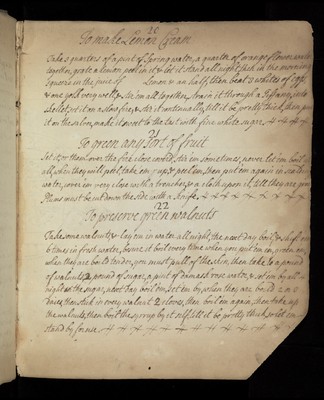 20
To make Lemon Cream
Take 3 quarters of a pint of Spring water, a quarter of orange flower water
together, grate a lemon peel in it & let it stand all night, then in the morning
squeeze in the juice of Lemon an half, then beat 3 whites of eggs
& one yolk very well, & stir em all together, strain it through a
skellet, set it on a slow fire, & stir it continually, till it be pretty thick, then pour
it on the salver, make it sweet to the tast with fine white sugar
21
To green any sort of fruit
Set it or them over the fire close cover'd, stir em sometimes, never let em boil
all, when they will peel, take em up, & peel em, then put em again in scalding
water, cover em very close with a trencher, & a cloth upon it, till they are green
Plums must be cut down the side with a knife
22
To preserve green walnuts
Take some walnuts & lay em in water all night, the next day boil & shift em
6 times in fresh water, & have it boil every time when you put em in,
when they are boild tender, you must pull of the skin, then take to a pound
of walnuts, 2 pound of sugar, a pint of damask rose water, & set em by all
night in the sugar, next day boil em, set em by, when they are boild 2 or 3
dayes, then stick in every walnut 2 cloves, then boil em again, then take up
the walnuts, then boil the syrup by it self till it be pretty thick, so let em
stand by for use